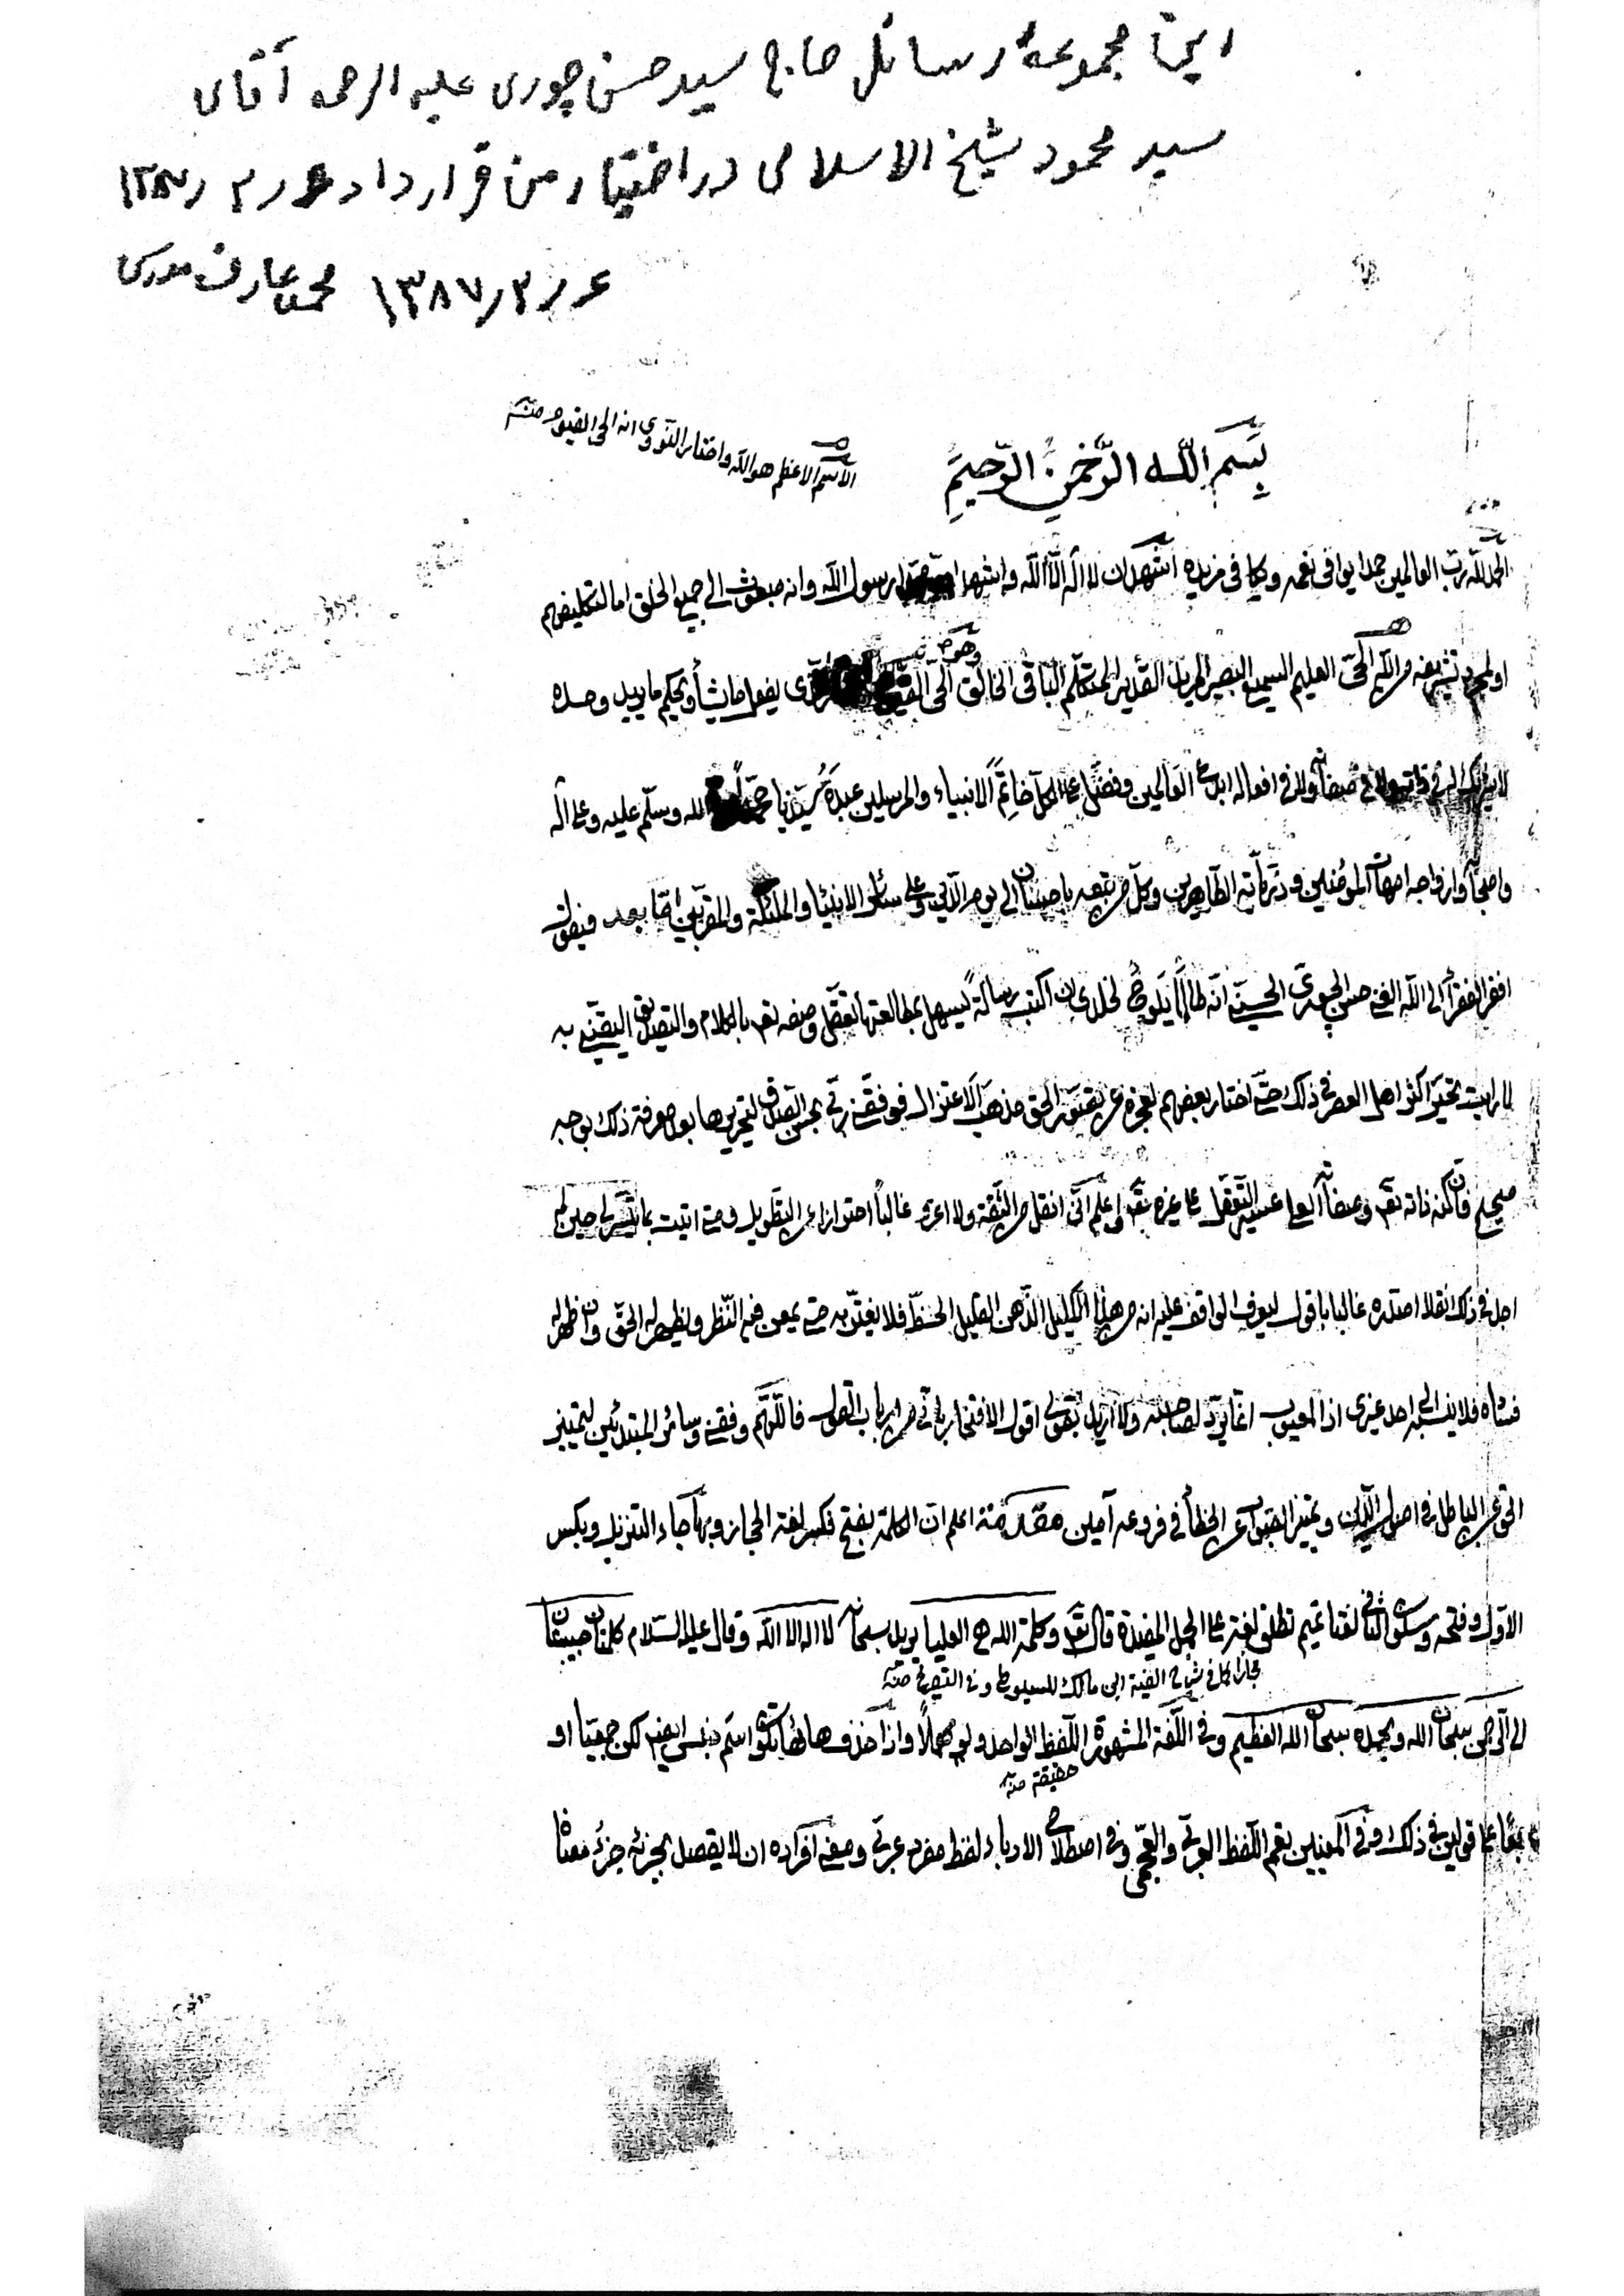 این مجموعهٔ رسائل حاج سید حسن چوری علیه الرحمه آقای
سید محمود شیخ الاسلامی در اختیار من قرار داد
۱۳۸۷٫۳٫۶ محمد عارف
بِسم الله الرَّحمنِ الرَّحیمِ
الاسم الاعظم هو الله واختار النووی انه الحی القیوم منه
الحمد لله رب العالمین حمدا یوافی نعمه ویکافی مزیده اشهد ان لا اله الّا الله واشهد ان رسول الله وانه مبعوث الی جمیع الخلق اما لتکلیفهم
او لمجرد تشریفه من الله الحیّ العلیم السمیع البصیر المرید القدیر المتکلّم الباقی الخالق الحیّ یفعل ما یشأ ویحکم ما یرید وحده
لا شریک له فی ذاته ولا فی صفاته ولا فی افعاله ابدع العالمین وفضّل علی الکلّ خاتِمَ الانبیاء والمرسلین عبدَه سیّدنا محمّداً الله وسلّم علیه وعلی آله
واصحابه وازواجه امهات المؤمنین وذریاته الطاهرین وکلّ من تبعه باحسان الی یوم الدّین وعلی سائر الانبیا والملئکة والمقربین امّا بعد فیقول
افقر الفقرأ الی الله الغنی حسن الچوری الحسینی انّه طالما یلوحُ لخلدی ان اکتب رسالةً یسهل بمطالعتها تعقّل وصفه تعم بالکلام والتصدیق الیقینی به
لما رایت تحیّر اکثر اهل العصر فی ذلک حتی اختار بعضهم لعجزه عن تصوّر الحق مذهب الاعتزال فوفّقنی ربّی بحسن لتحریرها بعد معرفة ذلک بوجه
صحیح فانّ کنه ذاته تعم وصفاته العلی عسیر التعقّل علی غیره تعم واعلم انّی انقل من الثقة ولا اعزو غالباً احترازا عن التطویل ومتی اتیت بما تیسّر لی حین لم
اجد فی ذلک نقلا اصدّره غالبا باقول لیعرف الواقف علیه انه من هذا الکلیل الذهن القلیل الحظّ فلا یغترّ به حتی یمعن فیه النّظر ویظهر له الحقّ وان ظهر له
فساده فلا ینسبه الی احد غیری اذ المعیوب انما یردّ لصاحبه ولا ارید بقولی اقول الافتخار بانّی من ارباب القول فاللّهمّ وفقنی وسائر المبتدئین لتمییز
الحق عن الباطل فی اصول الدّین وتمییز الصواب عن الخطأ فی فروعه آمین مقدّمة اعلم انّ الکلمة بفتح فکسر لغة الحجاز وبها جاء التنزیل وبکسر
الاوّل وفتحه وسکون الثانی لغتا تمیم تطلق لغة علی الجمل المفیدة قال تعم وکلمة الله هی العلیا یرید سبحانه لا اله الا الله وقال علیه السّلام کلمتان حبیبتان
مجاز کما فی شرح الفیة ابن مالک للسیوطی وفی التصریح منه
الی الرّحمن سبحان الله وبحمده سبحان الله العظیم وفی اللّغة المشهورة اللّفظ الواحد ولو مهملاً واذا حذف هائها تکون اسم جنس لکن جمعیّا او
حقیقة منه
علی قولین فی ذلک وفی المعنیین یعم اللّفظ العربیّ والعجمی وفی اصطلاح الادباء لفظ مفرد عربی ومعنی افراده ان لا یقصد بجزئه جزءُ معناه